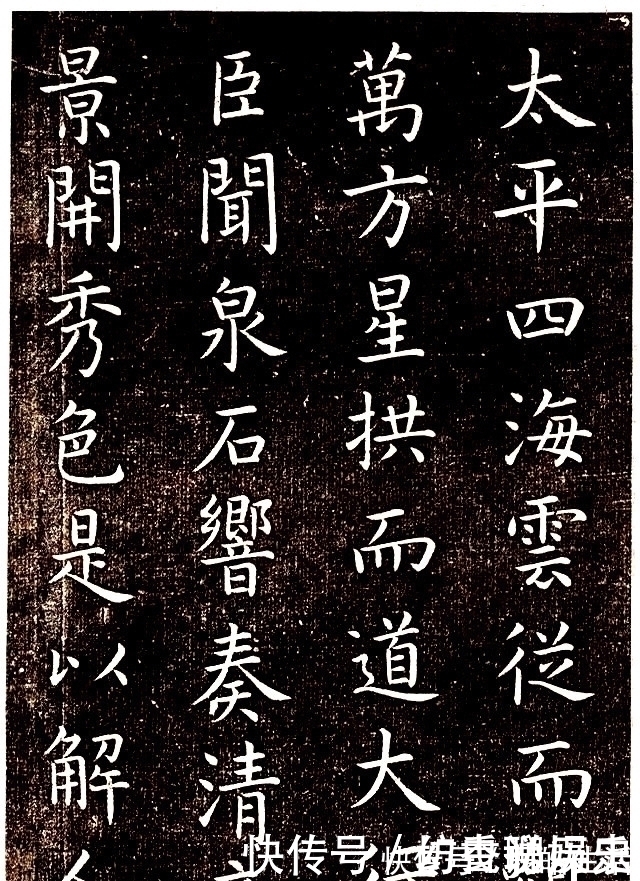 太平四海雲從而
萬方星拱而道大
臣聞泉石響奏清
景開秀色是以解
快传号/